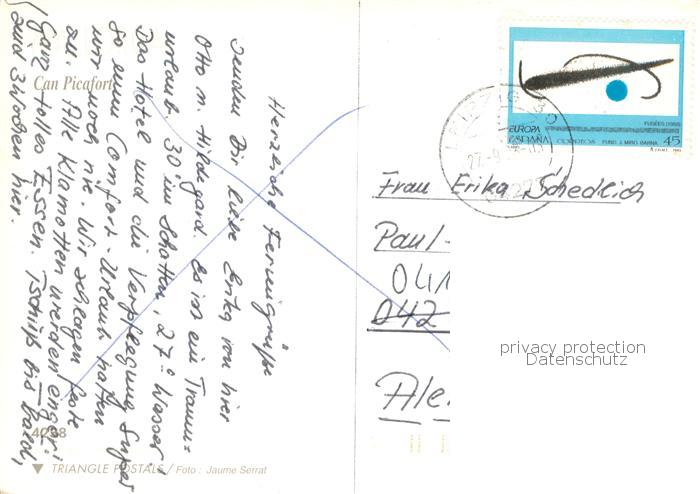 Herzliche Feriengrüße
senden Dir liebe Erika von hier
Otto u. Hildegard. Es ist ein Traum=
urlaub. 30° im Schatten, 27° Wasser!
Das Hotel und die Verpflegung Super
so einen Comfort-Urlaub hatten
wir noch nie. Wir schlagen feste
zu. Alle Klamotten werden enger!
Ganz tolles Essen. Tschüß bis bald,
sind 3 Wochen hier.
Can Picafort
4038
TRIANGLE POSTALS / Foto: Jaume Serrat
FUSÉES (1959)
EUROPA
ESPAÑA
FUND. J. MIRÓ. BARNA.
45
LEIPZIG
Frau Erika Schedlich
Paul-
041
042
Ale
privacy protection
Datenschutz